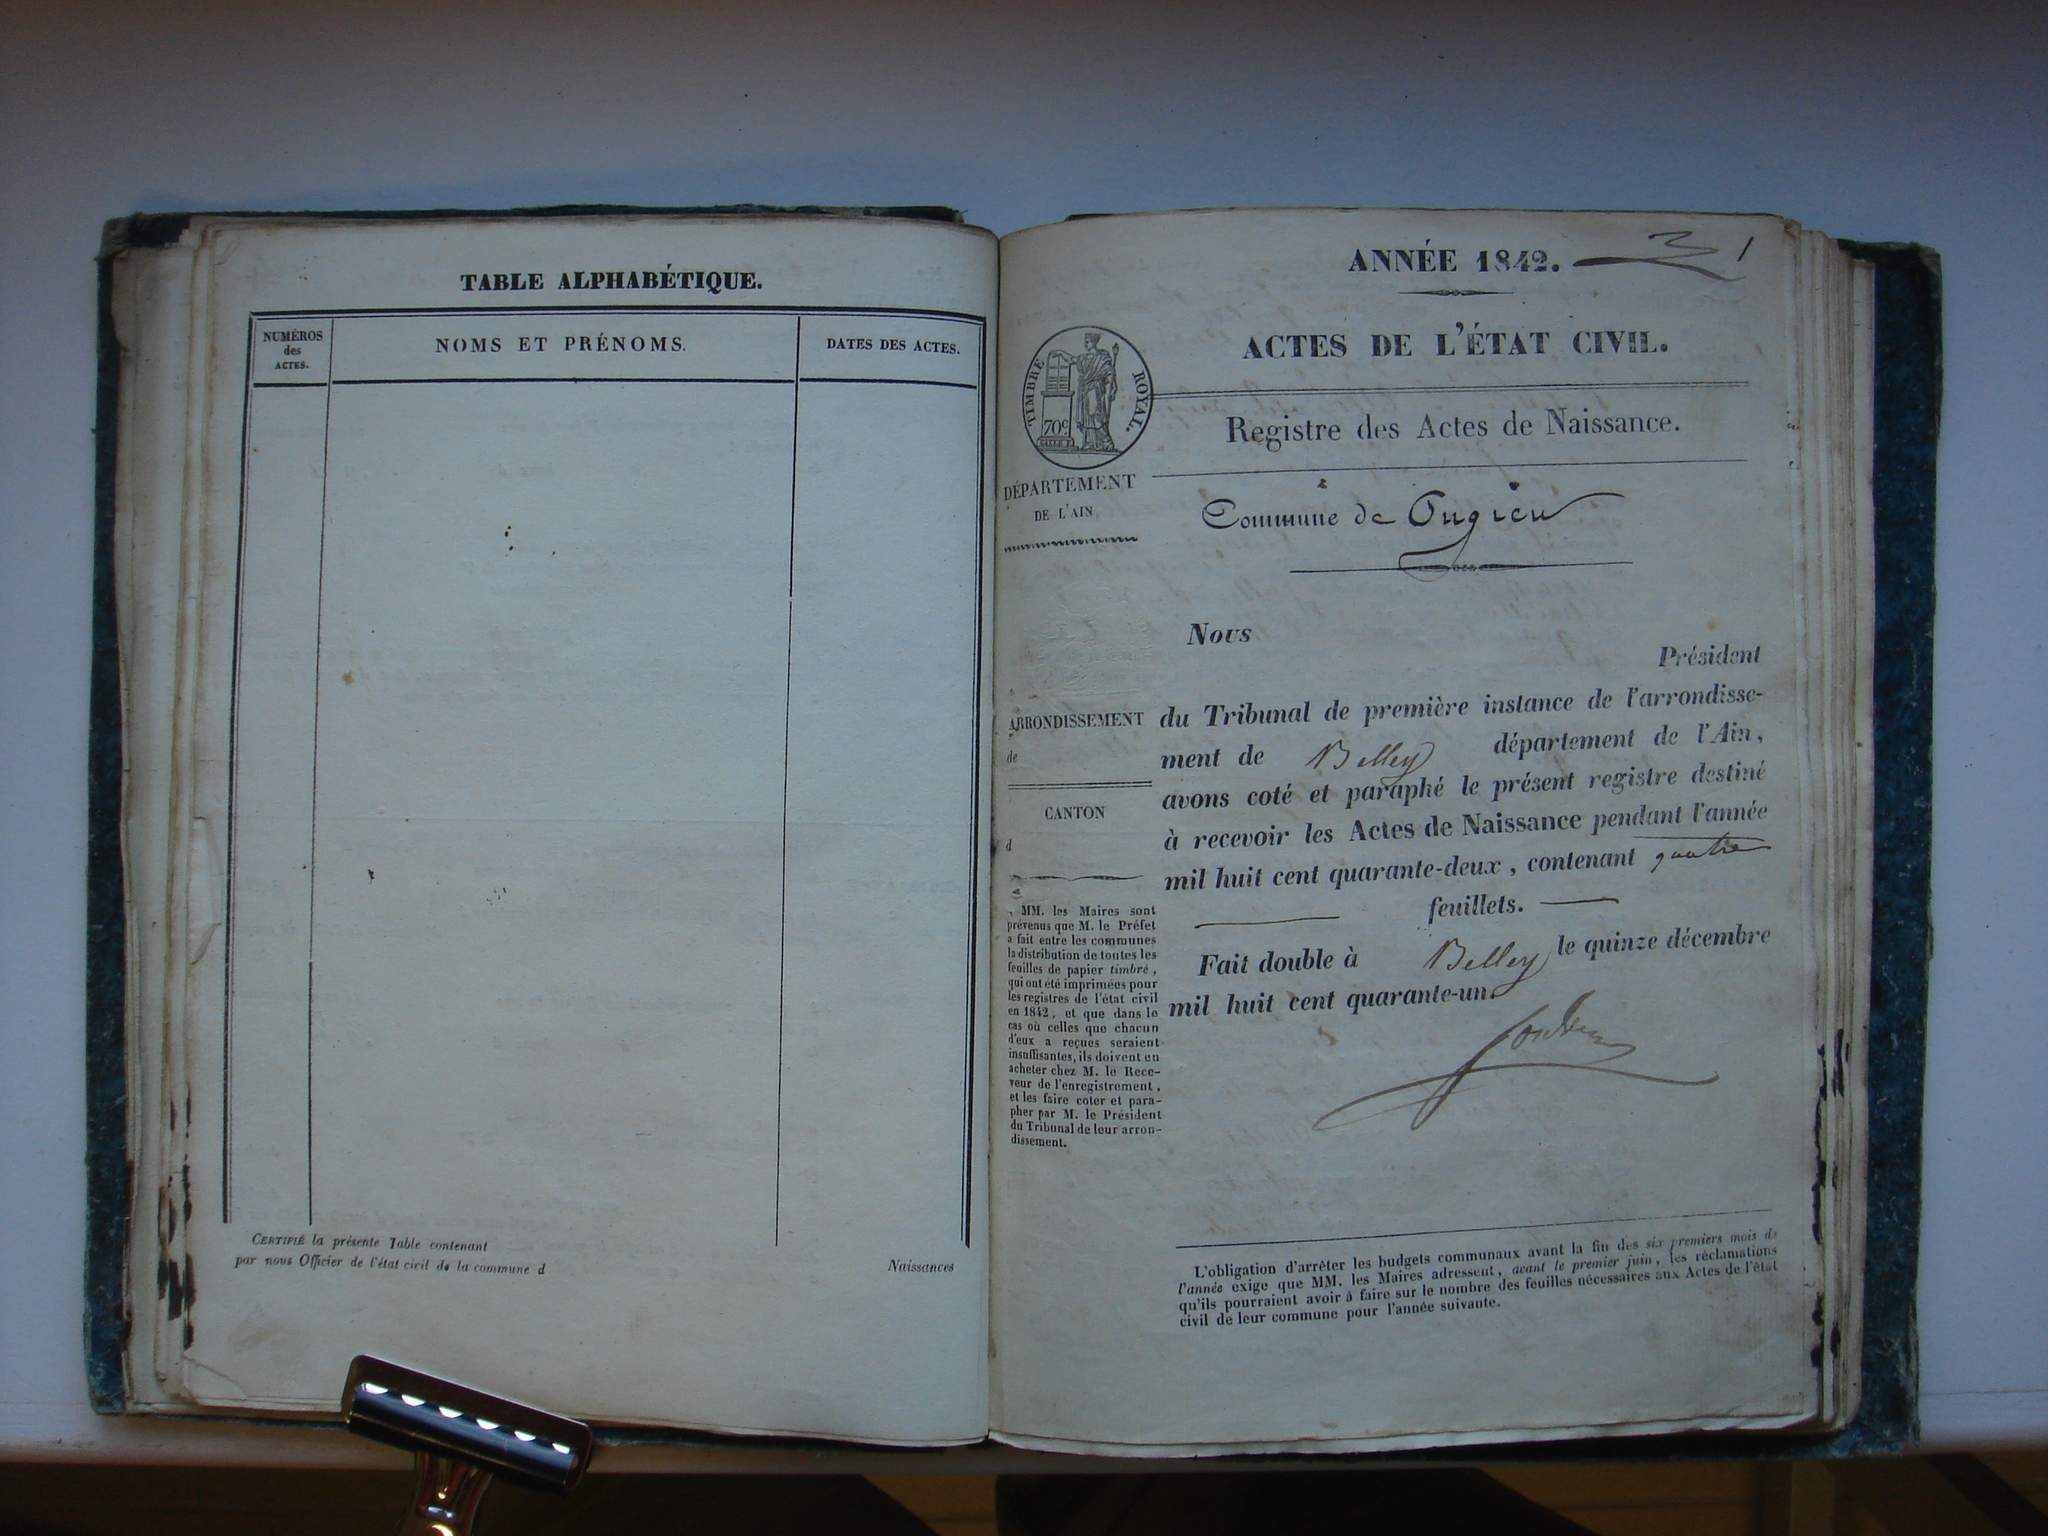 TABLE ALPHABÉTIQUE.
NUMÉROS
des
ACTES.
NOMS ET PRÉNOMS.
DATES DES ACTES.
CERTIFIÉ la présente Table contenant
Naissances
par nous Officier de l'état civil de la commune d
ANNÉE 1842.
1
ACTES DE L'ÉTAT CIVIL.
TIMBRE ROYAL.
70c
Registre des Actes de Naissance.
DÉPARTEMENT
DE L'AIN
Commune de Pugieu
Nous
Président
du Tribunal de première instance de l'arrondisse-
ment de Belley département de l'Ain,
avons coté et paraphé le présent registre destiné
à recevoir les Actes de Naissance pendant l'année
mil huit cent quarante-deux, contenant quatre
feuillets.
Fait double à Belley le quinze décembre
mil huit cent quarante-un.
ARRONDISSEMENT
de
CANTON
d
MM. les Maires sont
prévenus que M. le Préfet
a fait entre les communes
la distribution de toutes les
feuilles de papier timbré,
qui ont été imprimées pour
les registres de l'état civil
en 1842, et que dans le
cas où celles que chacun
d'eux a reçues seraient
insuffisantes, ils doivent en
acheter chez M. le Rece-
veur de l'enregistrement,
et les faire coter et para-
pher par M. le Président
du Tribunal de leur arron-
dissement.
L'obligation d'arrêter les budgets communaux avant la fin des six premiers mois de
l'année exige que MM. les Maires adressent, avant le premier juin, les réclamations
qu'ils pourraient avoir à faire sur le nombre des feuilles nécessaires aux Actes de l'état
civil de leur commune pour l'année suivante.